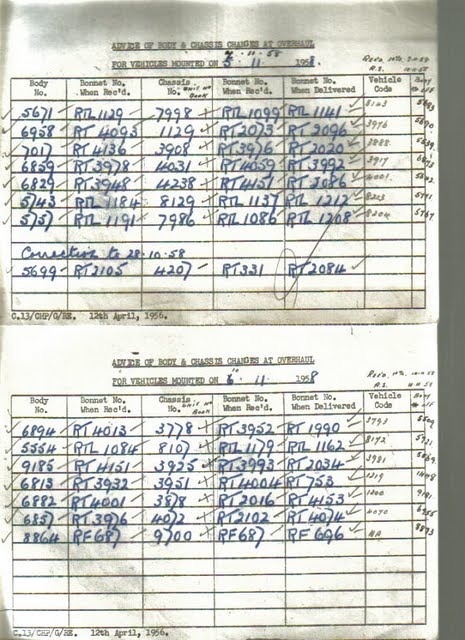 ADVICE OF BODY & CHASSIS CHANGES AT OVERHAUL
FOR VEHICLES MOUNTED ON 5 . 11 . 1958.
Body No. Bonnet No. When Rec'd. Chassis No. Unit No Book Bonnet No. When Rec'd. Bonnet No. When Delivered Vehicle Code Body
5671 RTL 1129 7998 RTL 1099 RTL 1141 5693
6958 RT 4093 1129 RT 2073 RT 2096 3976
7017 RT 4136 3908 RT 3976 RT 2020
6859 RT 3978 4031 RT 4059 RT 3992 3917
6829 RT 3948 4238 RT 4151 RT 2086 4001
5143 RTL 1184 8129 RTL 1137 RTL 1212 8203
5151 RTL 1191 7986 RTL 1086 RTL 1208 8204
Correction to 28.10.58
5699 RT 2105 4207 RT 331 RT 2084
C.13/CHP/G/RE. 12th April, 1956.
ADVICE OF BODY & CHASSIS CHANGES AT OVERHAUL
FOR VEHICLES MOUNTED ON 6 . 11 . 1958
Body No. Bonnet No. When Rec'd. Chassis No. Unit No Book Bonnet No. When Rec'd. Bonnet No. When Delivered Vehicle Code Body
6894 RT 4013 3778 RT 3952 RT 1990 3793
5554 RTL 1084 8107 RTL 1179 RTL 1162 8172 5721
9185 RT 4151 3925 RT 3993 RT 2034 3981
6813 RT 3932 3951 RT 4004 RT 753 1219
6882 RT 4001 3818 RT 2016 RT 4153 1200
6857 RT 3976 4072 RT 2102 RT 4074 4070
8864 RF 687 9700 RF 687 RF 696 NA 8893
C.13/CHP/G/RE. 12th April, 1956.